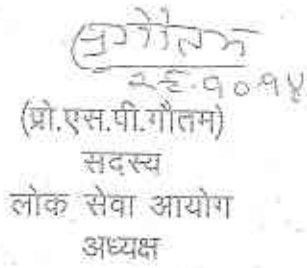 गौतम
२९.१०.१४
(प्रो.एस.पी.गौतम)
सदस्य
लोक सेवा आयोग
अध्यक्ष